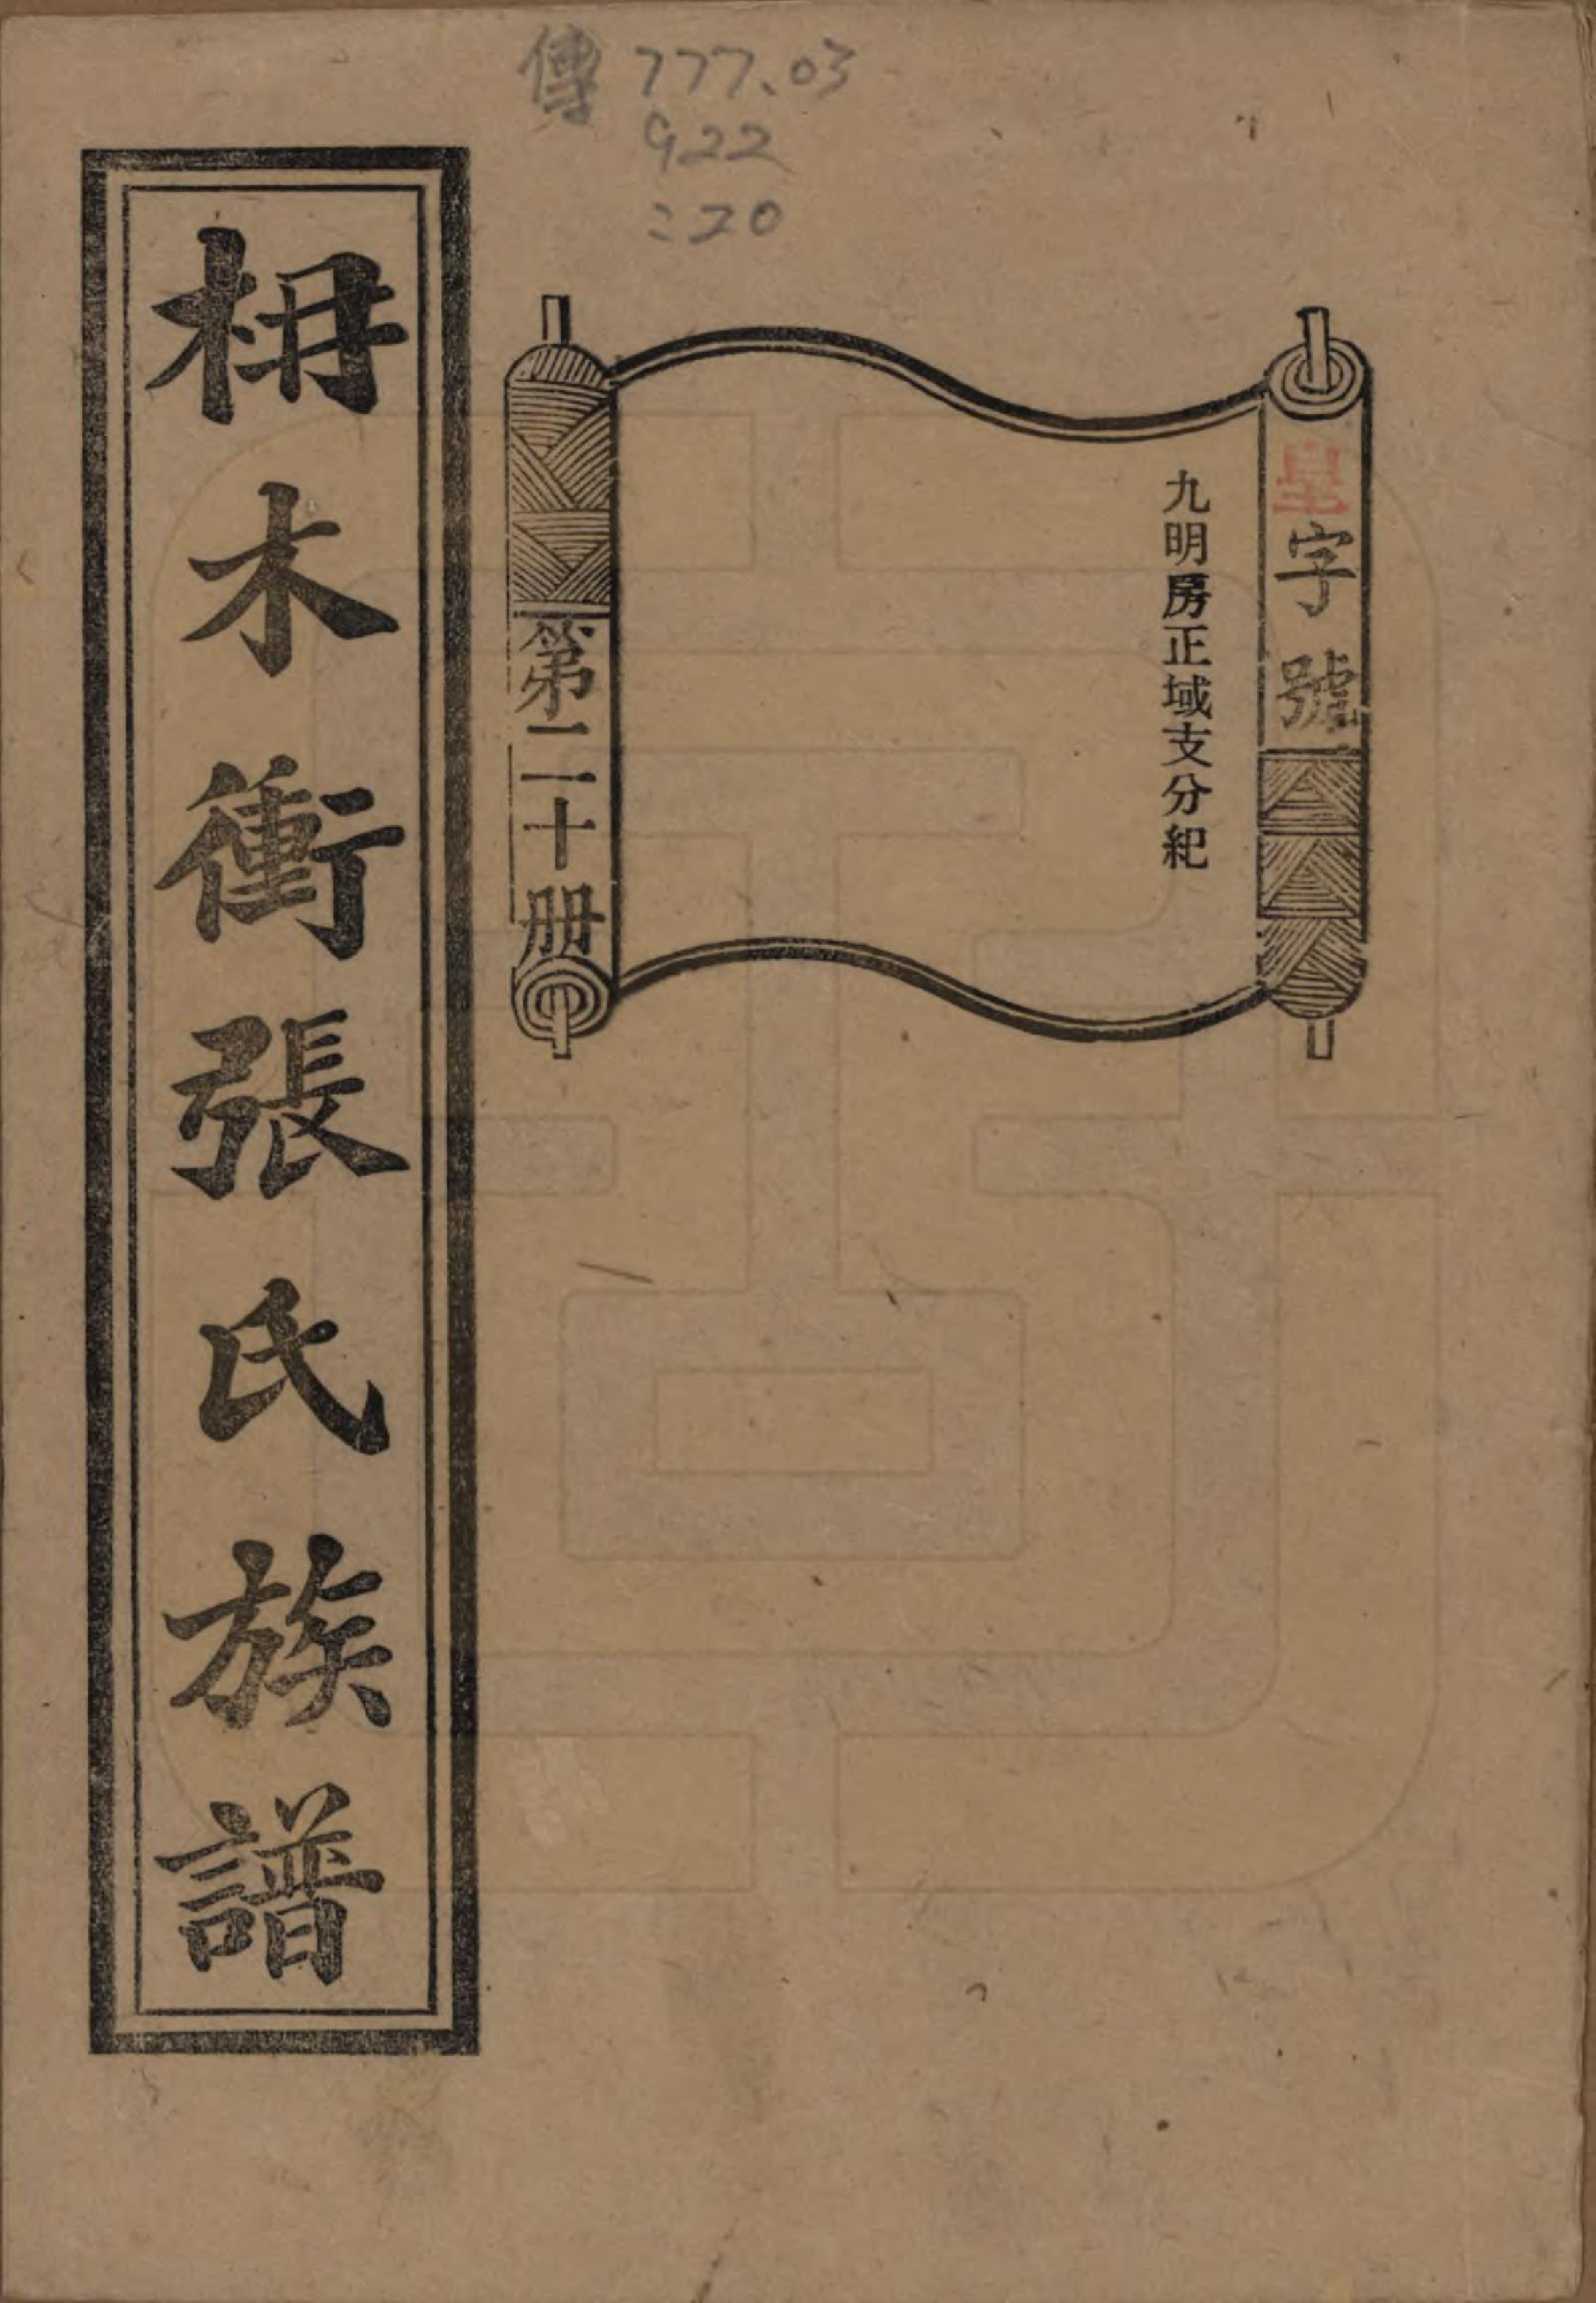 傳 777.03
922
:20
皇字號
九明房正域支分紀
第二十册
枏木衝張氏族譜